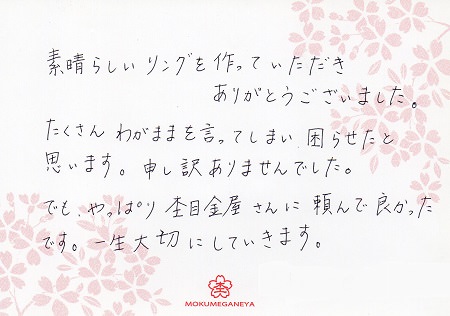 素晴らしいリングを作っていただき
ありがとうございました。
たくさん わがままを言ってしまい、困らせたと
思います。申し訳ありませんでした。
でも、やっぱり 杢目金屋さんに 頼んで良かった
です。一生大切にしていきます。
杢
MOKUMEGANEYA